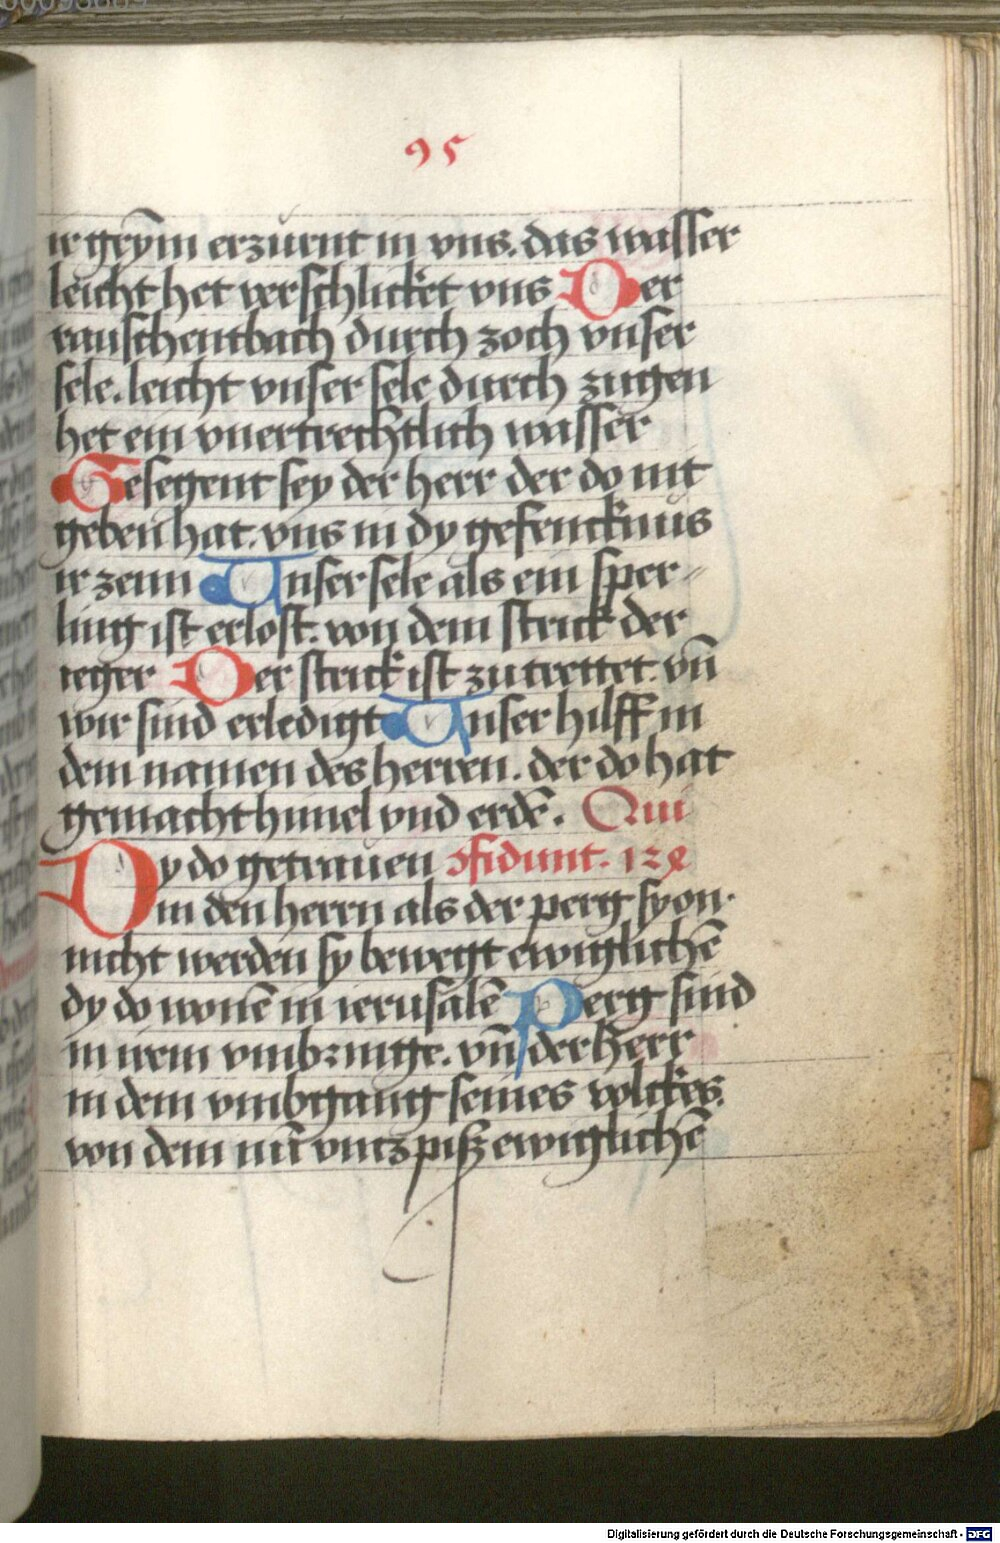 95
ir grym erzürnt in vns. das wasser
leicht het verschlicket vns Der
rauschentbach durch zoch vnser
sele. leicht vnser sele durch zugen
het ein vnertrechtlich wasser
Gesegent sey der herr der do nit
geben hat. vns in dy gefencknus
ir zenn Vnser sele als ein sper⸗
ling ist erlost. von dem strick der
ieger Der strick ist zutrettet. vn̄
wir sind erledigt Vnser hilff in
dem namen des herren. der do hat
gemacht himel vnd erdē. Qui
Dy do getrauen ꝯfidunt. 124
in den herrn als der perg syon.
nicht werden sy bewegt ewiglichē
dy do wonē in ierusalē Perg sind
in irem vmbringe. vn̄ der herr
in dem vmbgang seines volckes.
von dem nū vntz piß ewiglichē
Digitalisierung gefördert durch die Deutsche Forschungsgemeinschaft - DFG